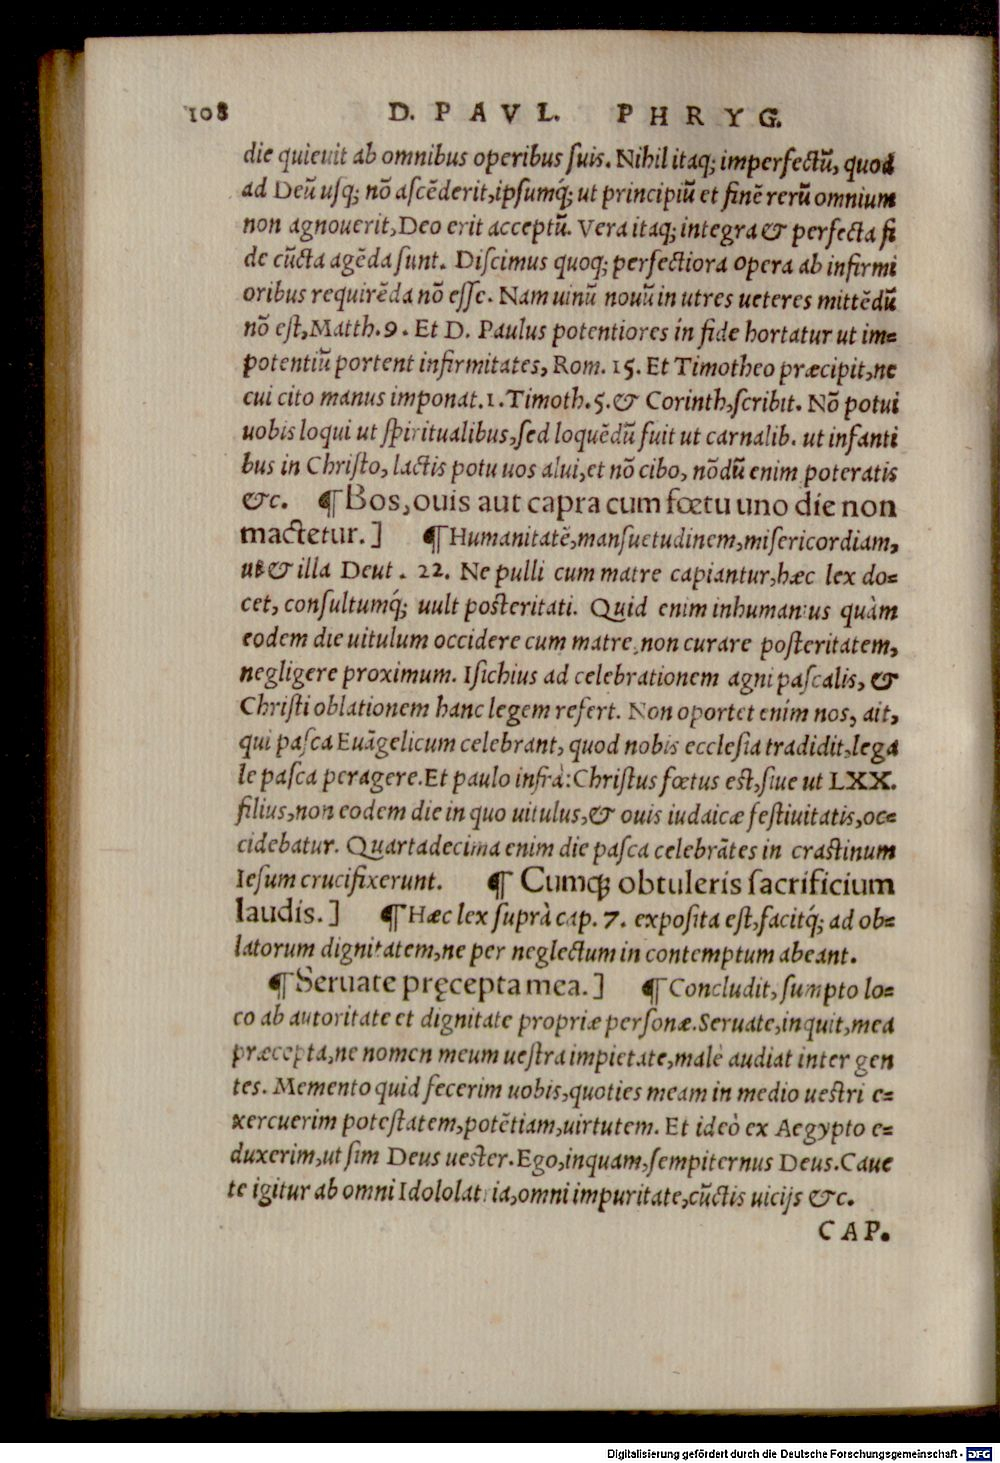 108 D. PAVL. PHRYG.
die quieuit ab omnibus operibus ſuis. Nihil itaq; imperfectũ, quod
ad Deũ uſq; nõ aſcẽderit, ipſumq́; ut principiũ et finẽ rerũ omnium
non agnouerit, Deo erit acceptũ. Vera itaq; integra & perfecta fi
de cũcta agẽda ſunt. Diſcimus quoq; perfectiora opera ab infirmi
oribus requirẽda nõ eſſe. Nam uinũ nouũ in utres ueteres mittẽdũ
nõ eſt, Matth. 9. Et D. Paulus potentiores in fide hortatur ut im=
potentiũ portent infirmitates, Rom. 15. Et Timotheo præcipit, ne
cui cito manus imponat. 1. Timoth. 5. & Corinth, ſcribit. Nõ potui
uobis loqui ut ſpiritualibus, ſed loquẽdũ fuit ut carnalib. ut infanti
bus in Chriſto, lactis potu uos alui, et nõ cibo, nõdũ enim poteratis
&c. ¶ Bos, ouis aut capra cum fœtu uno die non
mactetur.] ¶ Humanitatẽ, manſuetudinem, miſericordiam,
ut & illa Deut. 22. Ne pulli cum matre capiantur, hæc lex do=
cet, conſultumq́; uult poſteritati. Quid enim inhumanius quàm
eodem die uitulum occidere cum matre, non curare poſteritatem,
negligere proximum. Iſichius ad celebrationem agni paſcalis, &
Chriſti oblationem hanc legem refert. Non oportet enim nos, ait,
qui paſca Euãgelicum celebrant, quod nobis eccleſia tradidit, lega
le paſca peragere. Et paulo infrà: Chriſtus fœtus eſt, ſiue ut LXX.
filius, non eodem die in quo uitulus, & ouis iudaicæ feſtiuitatis, oc=
cidebatur. Quartadecima enim die paſca celebrãtes in craſtinum
Ieſum crucifixerunt. ¶ Cumq; obtuleris ſacrificium
laudis.] ¶ Hæc lex ſuprà cap. 7. expoſita eſt, facitq́; ad ob=
latorum dignitatem, ne per neglectum in contemptum abeant.
¶ Seruate pręcepta mea.] ¶ Concludit, ſumpto lo=
co ab autoritate et dignitate propriæ perſonæ. Seruate, inquit, mea
præcepta, ne nomen meum ueſtra impietate, malè audiat inter gen
tes. Memento quid fecerim uobis, quoties meam in medio ueſtri e=
xercuerim poteſtatem, potẽtiam, uirtutem. Et ideò ex Aegypto e=
duxerim, ut ſim Deus ueſter. Ego, inquam, ſempiternus Deus. Caue
te igitur ab omni Idololatria, omni impuritate, cũctis uicijs &c.
CAP.
Digitalisierung gefördert durch die Deutsche Forschungsgemeinschaft - DFG